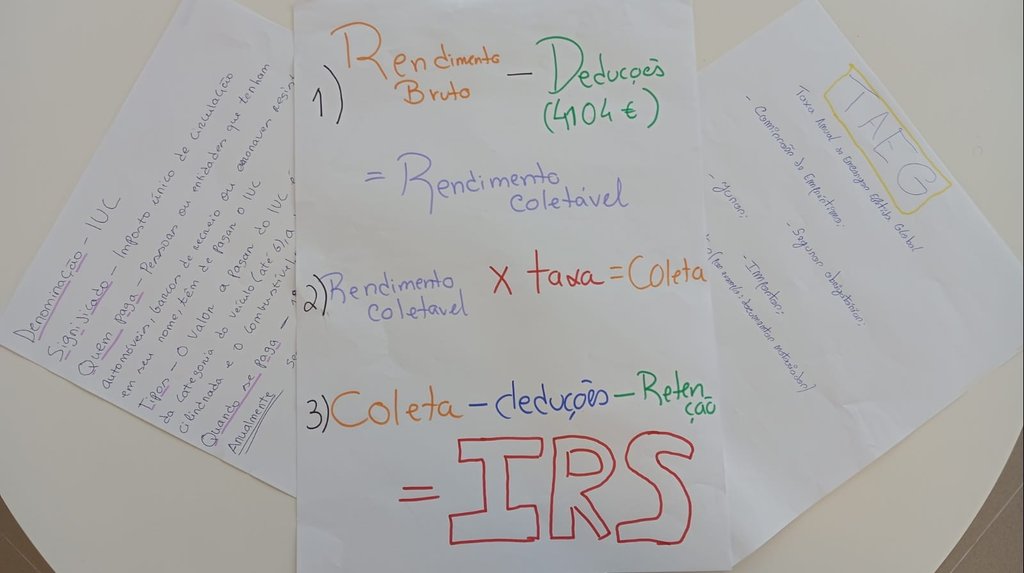 Denominação - IUC
Significado - Imposto único de circulação
Quem paga - Pessoas ou entidades que tenham
automóveis, barcos de recreio ou aeronaves
em seu nome, têm de pagar o IUC
Tipos - O valor a pagar do IUC
da categoria do veículo (até 6), a
cilindrada e o combustível
Quando se paga -
Anualmente
1) Rendimento
Bruto - Deduções
(4104 €)
= Rendimento
coletável
2) Rendimento
coletavel x taxa = Coleta
3) Coleta - deduções - Reten-
ção
= IRS
TAEG
Taxa Anual de Encargos Efetiva Global
- Comissões do Empréstimo;
- Seguros obrigatórios;
- Juros;
- Impostos;